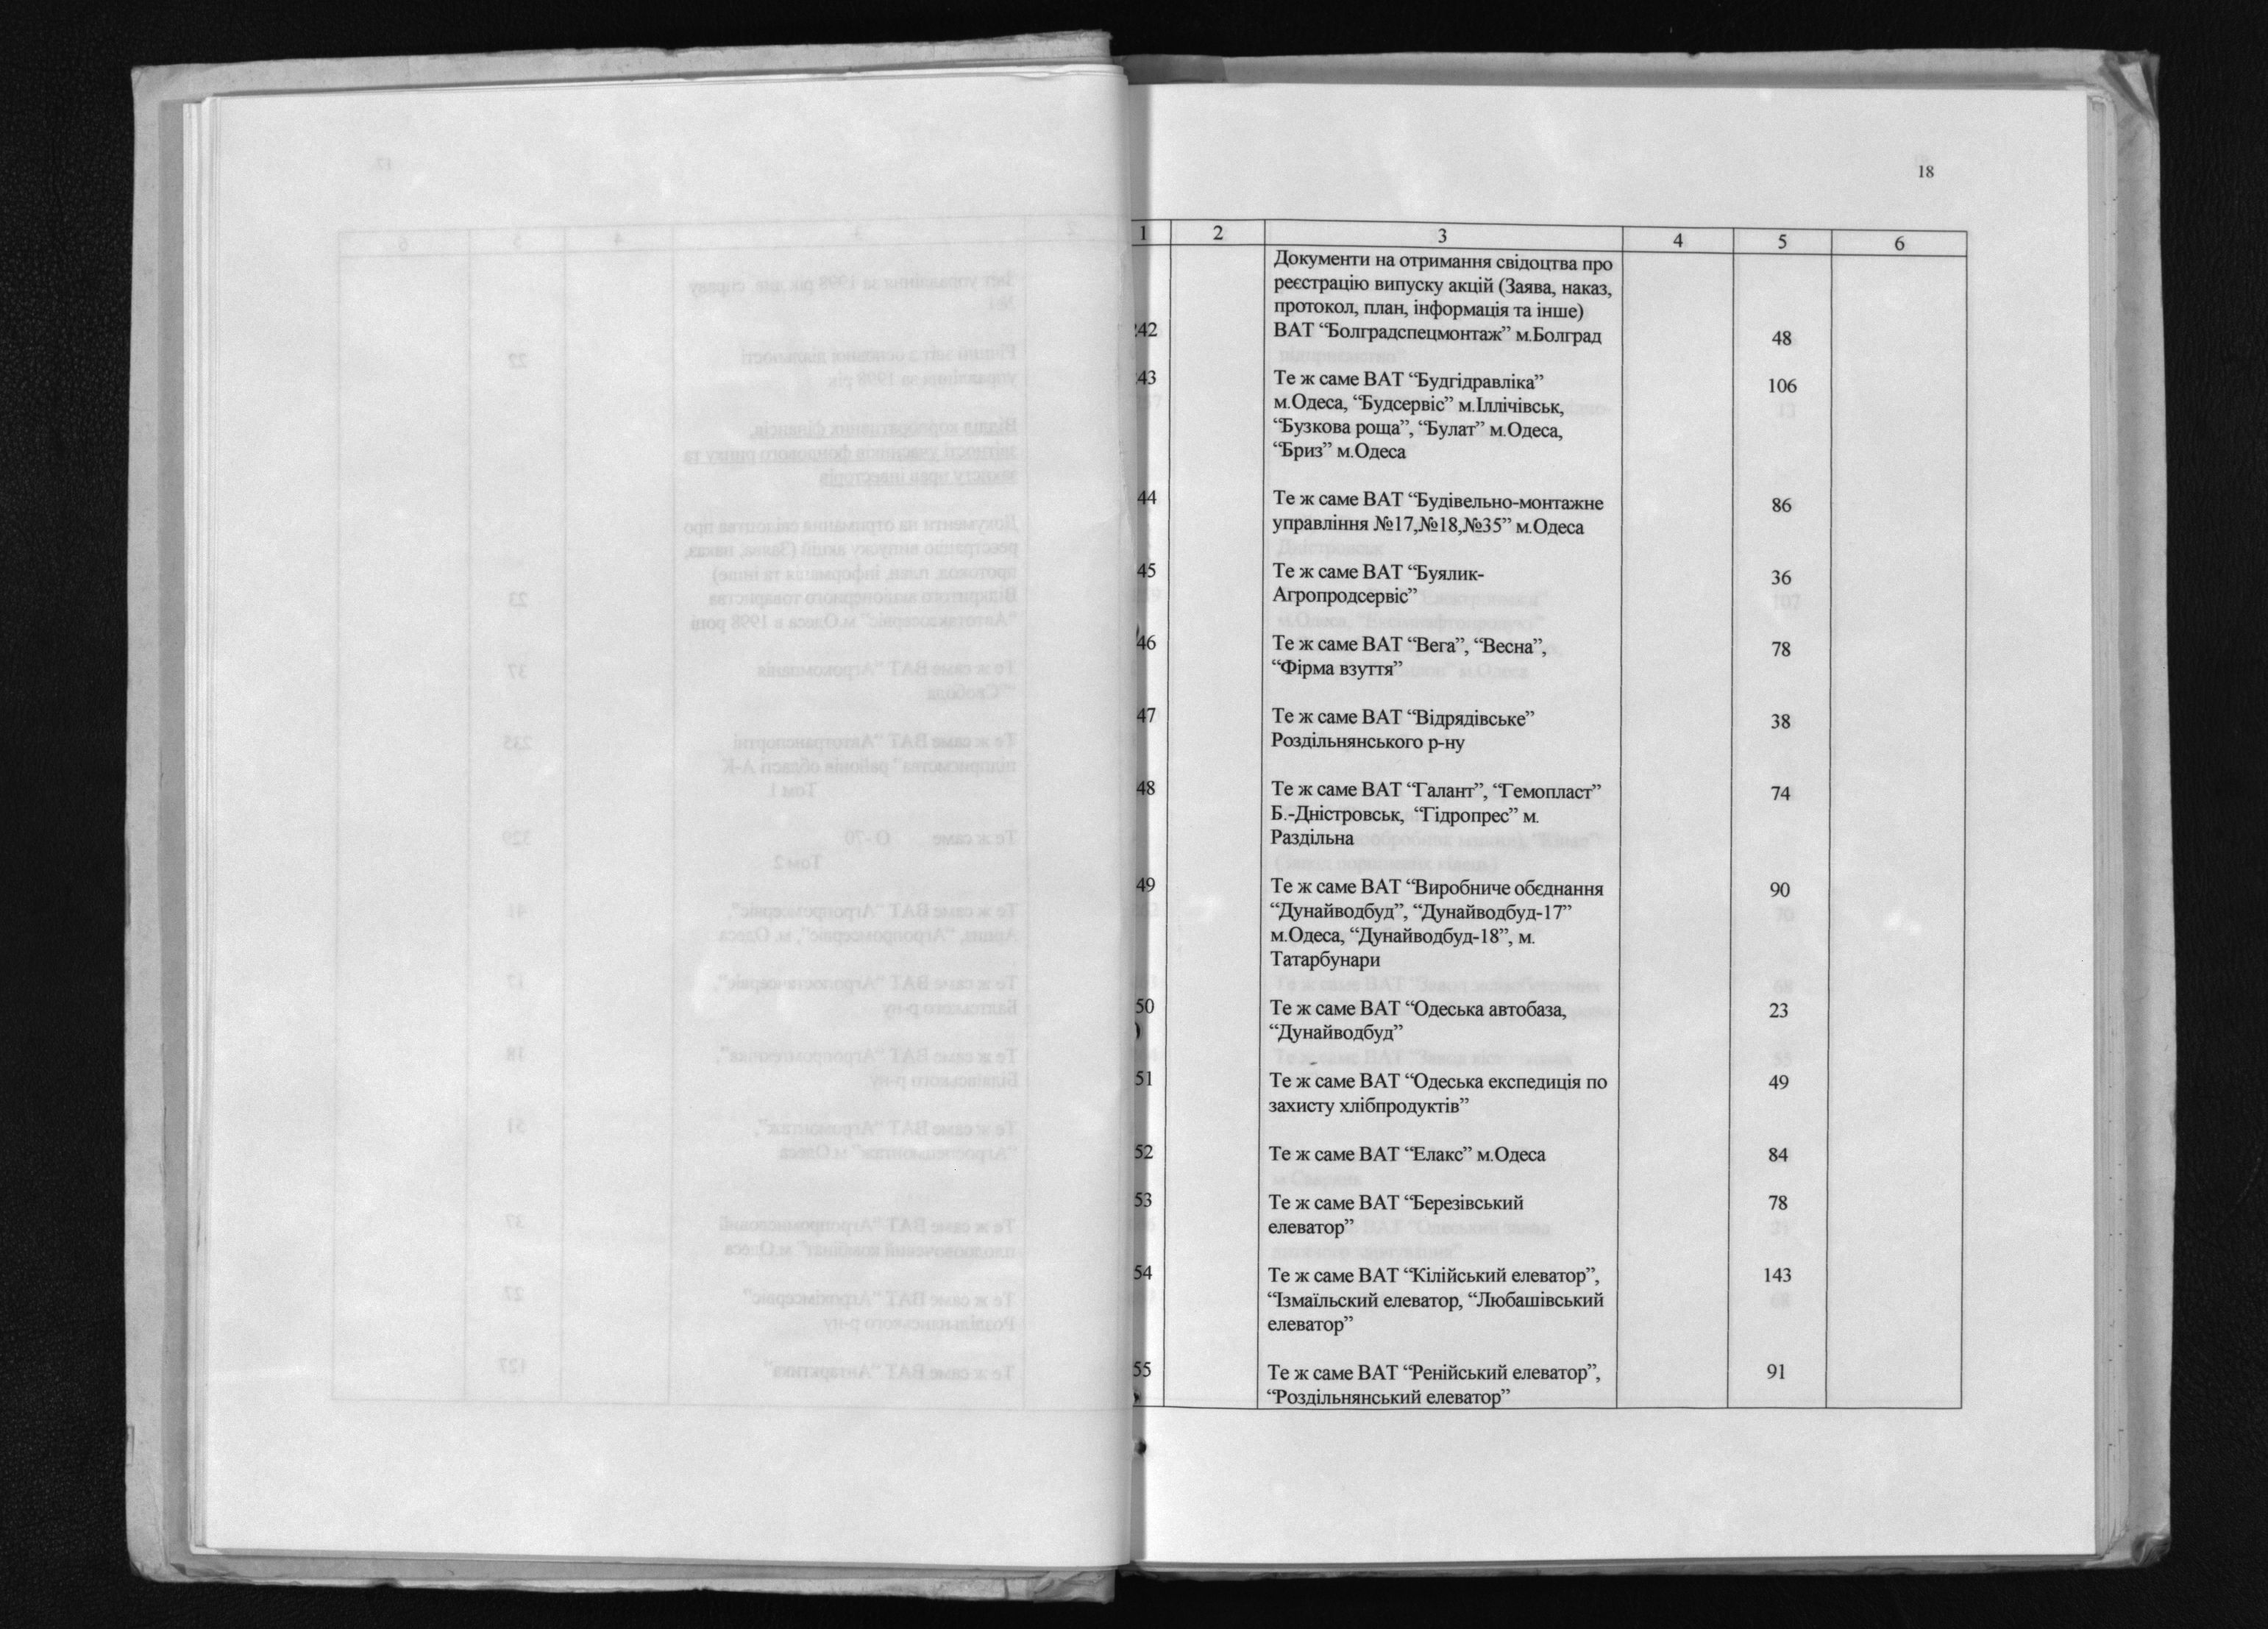 18
1 2 3 4 5 6
Документи на отримання свідоцтва про
реєстрацію випуску акцій (Заява, наказ,
протокол, план, інформація та інше)
42 ВАТ “Болградспецмонтаж” м.Болград 48
43 Те ж саме ВАТ “Будгідравліка” 106
м.Одеса, “Будсервіс” м.Іллічівськ,
“Бузкова роща”, “Булат” м.Одеса,
“Бриз” м.Одеса
44 Те ж саме ВАТ “Будівельно-монтажне 86
управління №17,№18,№35” м.Одеса
45 Те ж саме ВАТ “Буялик- 36
Агропродсервіс”
46 Те ж саме ВАТ “Вега”, “Весна”, 78
“Фірма взуття”
47 Те ж саме ВАТ “Відрядівське” 38
Роздільнянського р-ну
48 Те ж саме ВАТ “Галант”, “Гемопласт” 74
Б.-Дністровськ, “Гідропрес” м.
Раздільна
49 Те ж саме ВАТ “Виробниче обєднання 90
“Дунайводбуд”, “Дунайводбуд-17”
м.Одеса, “Дунайводбуд-18”, м.
Татарбунари
50 Те ж саме ВАТ “Одеська автобаза, 23
“Дунайводбуд”
51 Те ж саме ВАТ “Одеська експедиція по 49
захисту хлібпродуктів”
52 Те ж саме ВАТ “Елакс” м.Одеса 84
53 Те ж саме ВАТ “Березівський 78
елеватор”
54 Те ж саме ВАТ “Кілійський елеватор”, 143
“Ізмаїльский елеватор, “Любашівський
елеватор”
55 Те ж саме ВАТ “Ренійський елеватор”, 91
“Роздільнянський елеватор”